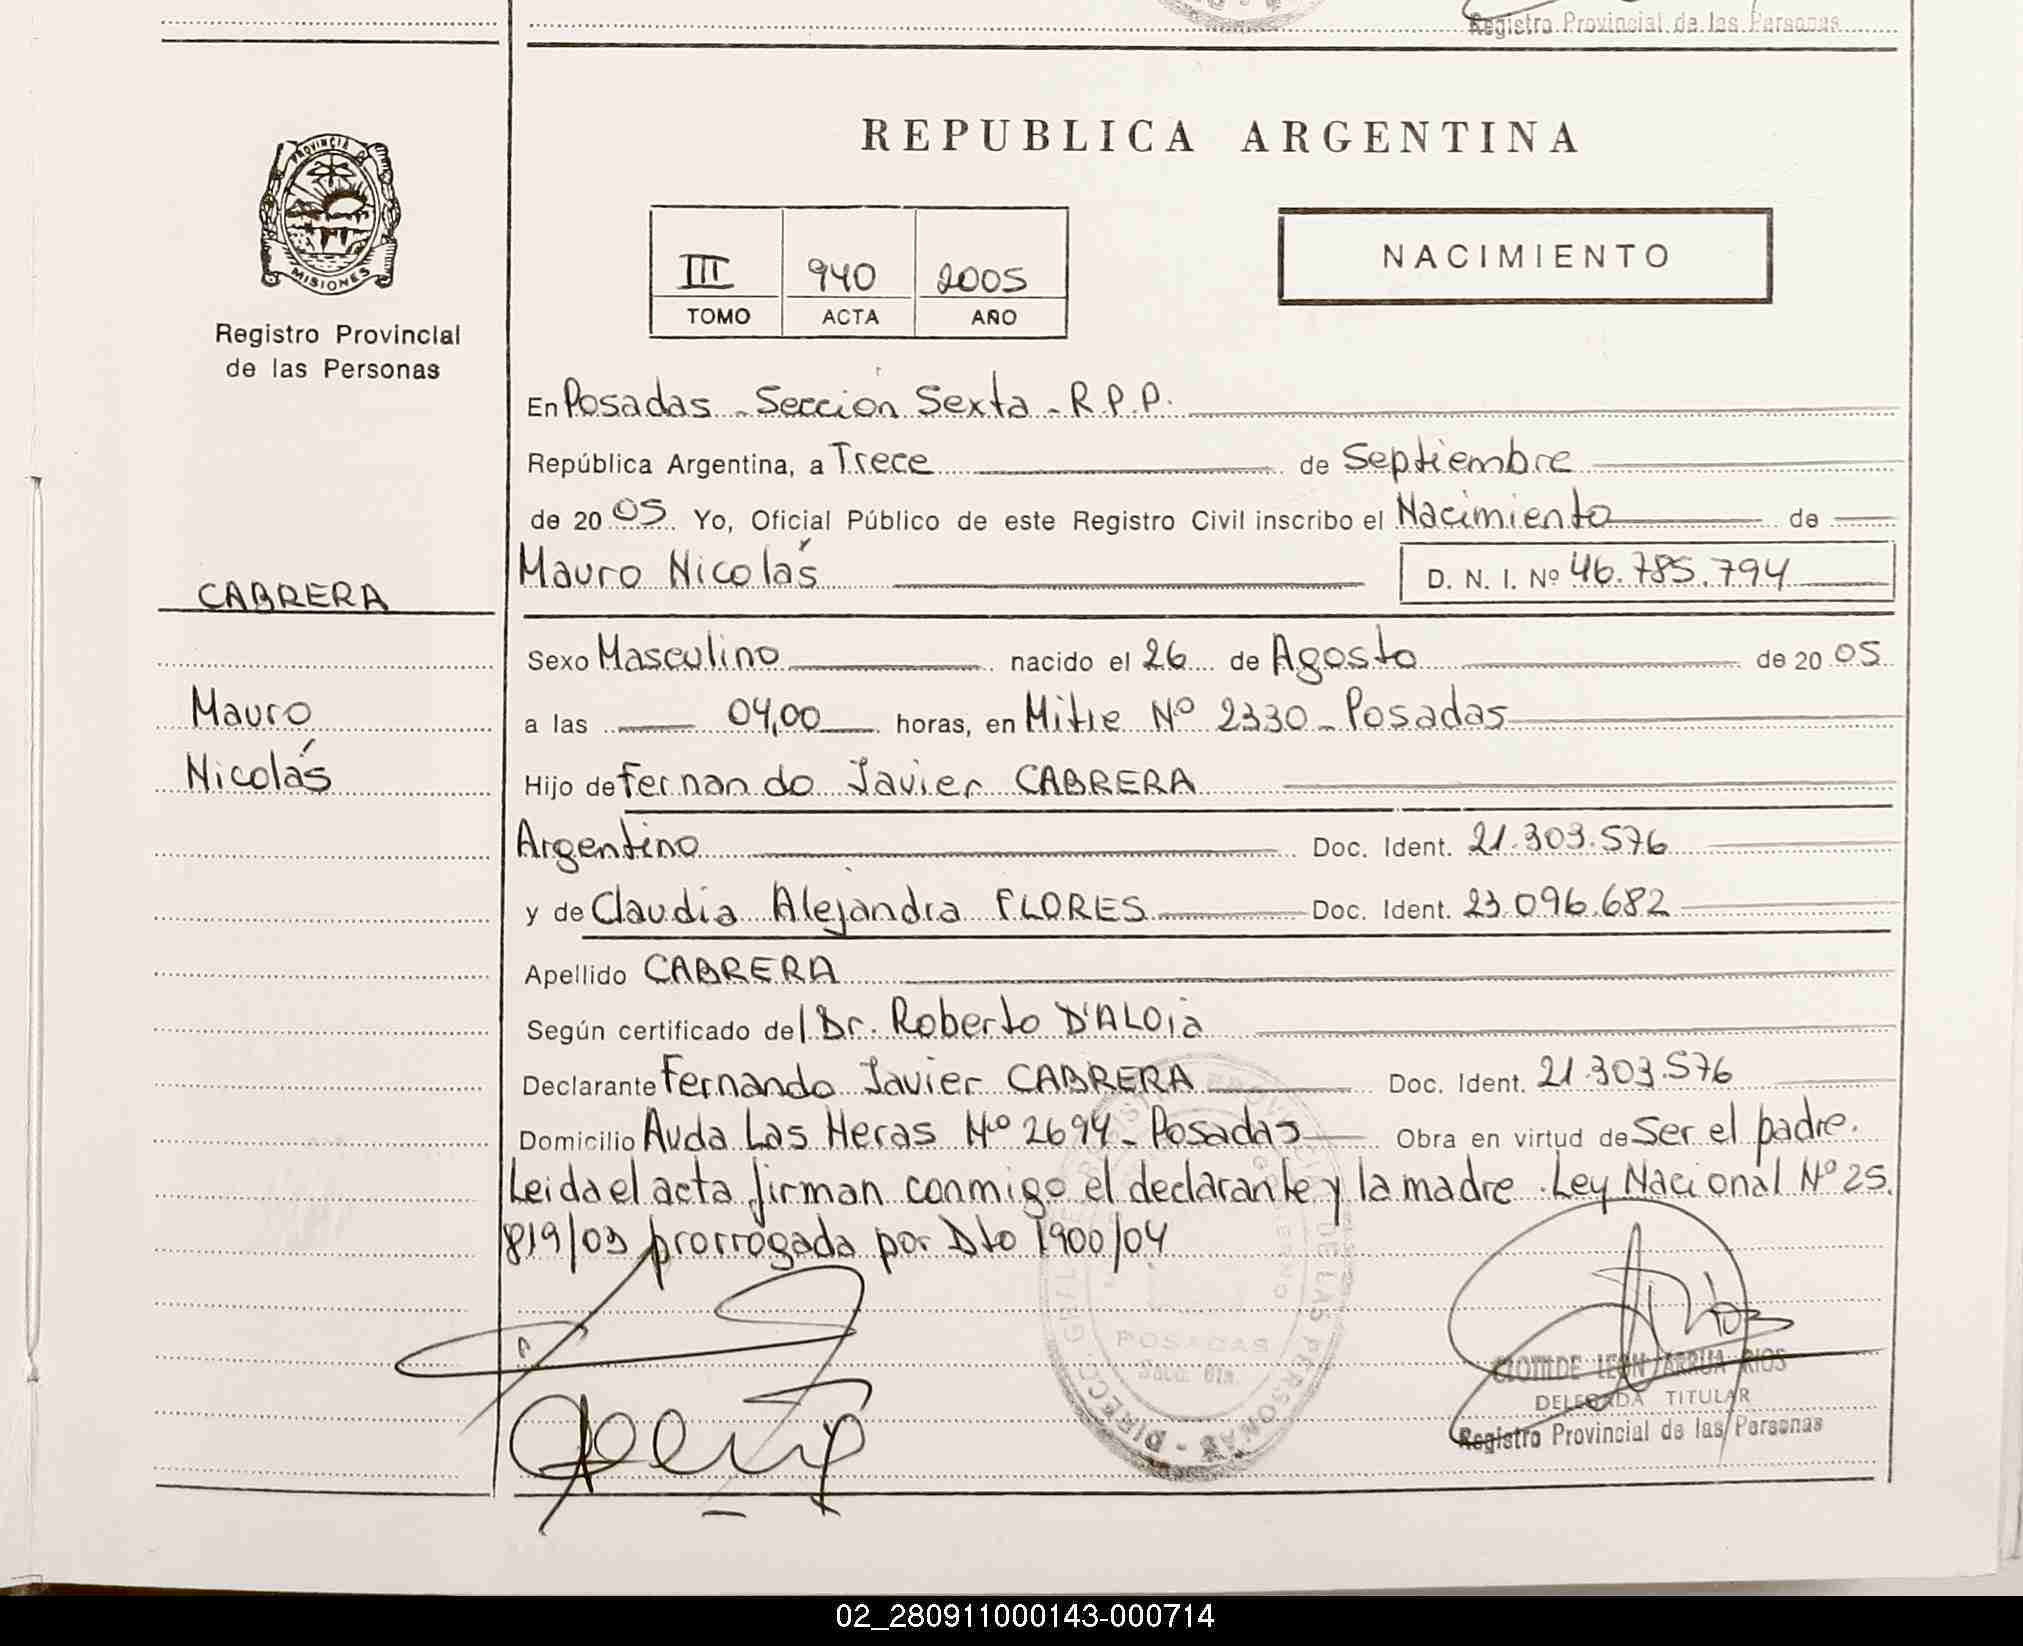 Registro Provincial de las Personas
PROVINCIA DE
MISIONES
Registro Provincial
de las Personas
CABRERA
Mauro
Nicolás
REPUBLICA ARGENTINA
III 940 2005
TOMO ACTA AÑO
NACIMIENTO
En Posadas - Sección Sexta - R.P.P.
República Argentina, a Trece de Septiembre
de 20 05 Yo, Oficial Público de este Registro Civil inscribo el Nacimiento de
Mauro Nicolás D. N. I. Nº 46.785.794
Sexo Masculino nacido el 26 de Agosto de 20 05
a las 04,00 horas, en Mitre Nº 2330 - Posadas
Hijo de Fernando Javier CABRERA
Argentino Doc. Ident. 21.303.576
y de Claudia Alejandra FLORES Doc. Ident. 23.096.682
Apellido CABRERA
Según certificado del Dr. Roberto D'ALOia
Declarante Fernando Javier CABRERA Doc. Ident. 21.303.576
Domicilio Avda Las Heras Nº 2694 - Posadas Obra en virtud de Ser el padre.
Leida el acta firman conmigo el declarante y la madre. Ley Nacional Nº 25.
819/03 prorrogada por Dto 1900/04
POSADAS
Secc. 6ta.
DE LAS PERSONAS
CLOTILDE LEON ZARRUA RIOS
DELEGADA TITULAR
Registro Provincial de las Personas
02_280911000143-000714